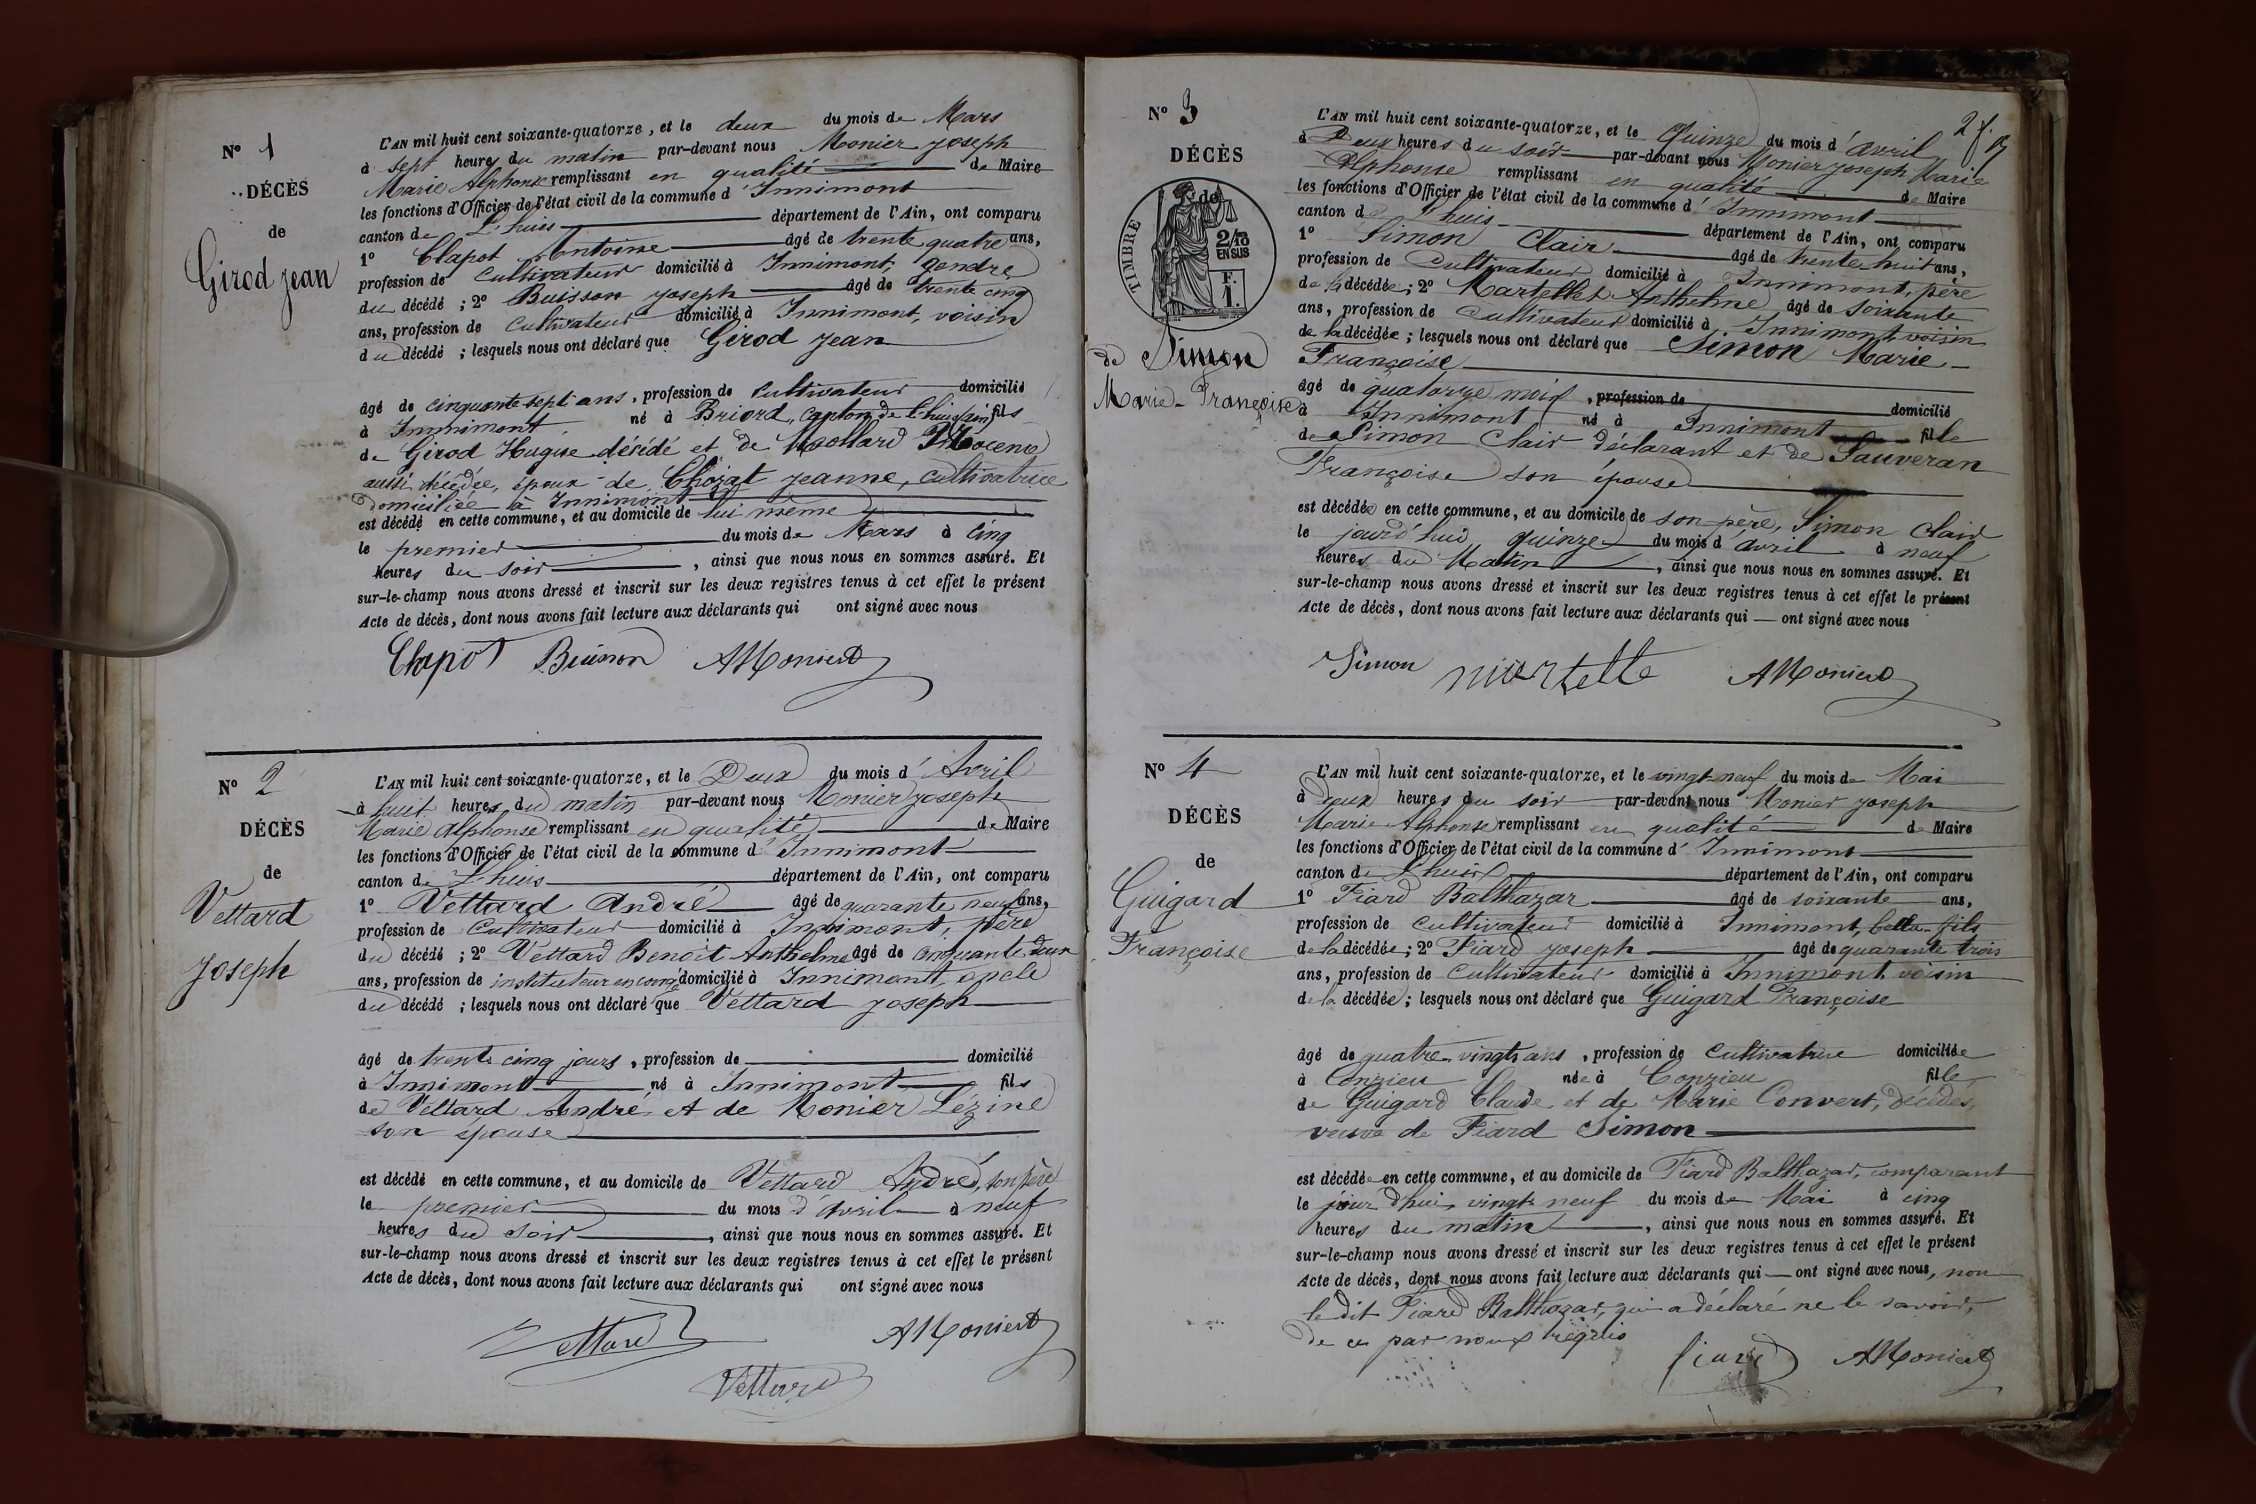 N° 1
DÉCÈS
de
Girod Jean
L'AN mil huit cent soixante-quatorze, et le deux du mois de Mars
à sept heures du matin par-devant nous Monier Joseph
Marie Alphonse remplissant en qualité de Maire
les fonctions d'Officier de l'état civil de la commune d'Innimont
canton de Lhuis département de l'Ain, ont comparu
1° Clapot Antoine âgé de trente quatre ans,
profession de Cultivateur domicilié à Innimont, gendre
du décédé ; 2° Buisson Joseph âgé de trente cinq
ans, profession de Cultivateur domicilié à Innimont, voisin
du décédé ; lesquels nous ont déclaré que Girod Jean
âgé de cinquante sept ans, profession de Cultivateur domicilié
à Innimont né à Briord, canton de Lhuis (Ain) fils
de Girod Hugue décédé et de Mollard
aussi décédée, époux de Chozat Jeanne, cultivatrice
domiciliée à Innimont
est décédé en cette commune, et au domicile de lui même
le premier du mois de Mars à cinq
heures du soir, ainsi que nous nous en sommes assuré. Et
sur-le-champ nous avons dressé et inscrit sur les deux registres tenus à cet effet le présent
Acte de décès, dont nous avons fait lecture aux déclarants qui ont signé avec nous
Clapot Buisson AMonier
N° 2
DÉCÈS
de
Vettard
Joseph
L'AN mil huit cent soixante-quatorze, et le Deux du mois d'Avril
à huit heures du matin par-devant nous Monier Joseph
Marie Alphonse remplissant en qualité de Maire
les fonctions d'Officier de l'état civil de la commune d'Innimont
canton de Lhuis département de l'Ain, ont comparu
1° Vettard André âgé de quarante neuf ans,
profession de Cultivateur domicilié à Innimont, père
du décédé ; 2° Vettard Benoît Anthelme âgé de cinquante deux
ans, profession de instituteur en congé domicilié à Innimont, oncle
du décédé ; lesquels nous ont déclaré que Vettard Joseph
âgé de trente cinq jours, profession de domicilié
à Innimont né à Innimont fils
de Vettard André et de Monier Lézine
son épouse
est décédé en cette commune, et au domicile de Vettard André, son père
le premier du mois d'Avril à neuf
heures du soir, ainsi que nous nous en sommes assuré. Et
sur-le-champ nous avons dressé et inscrit sur les deux registres tenus à cet effet le présent
Acte de décès, dont nous avons fait lecture aux déclarants qui ont signé avec nous
Vettard AMonier
Vettard
2 f.
N° 3
DÉCÈS
de
TIMBRE
2/10
EN SUS
F.
1.
de Simon
Marie-Françoise
L'AN mil huit cent soixante-quatorze, et le Quinze du mois d'avril
à Deux heures du soir par-devant nous Monier Joseph Marie
Alphonse remplissant en qualité de Maire
les fonctions d'Officier de l'état civil de la commune d'Innimont
canton de Lhuis département de l'Ain, ont comparu
1° Simon Clair âgé de trente huit ans,
profession de Cultivateur domicilié à Innimont, père
de la décédée ; 2° Martellet Anthelme âgé de soixante
ans, profession de Cultivateur domicilié à Innimont voisin
de la décédée ; lesquels nous ont déclaré que Simon Marie
Françoise
âgé de quatorze mois, profession de domicilié
à Innimont né à Innimont fille
de Simon Clair déclarant et de Sauveran
Françoise son épouse
est décédée en cette commune, et au domicile de son père, Simon Clair
le jourd'hui quinze du mois d'avril à neuf
heures du Matin, ainsi que nous nous en sommes assuré. Et
sur-le-champ nous avons dressé et inscrit sur les deux registres tenus à cet effet le présent
Acte de décès, dont nous avons fait lecture aux déclarants qui — ont signé avec nous
Simon martelle AMonier
N° 4
DÉCÈS
de
Guigard
Françoise
L'AN mil huit cent soixante-quatorze, et le vingt-neuf du mois de Mai
à deux heures du soir par-devant nous Monier Joseph
Marie Alphonse remplissant en qualité de Maire
les fonctions d'Officier de l'état civil de la commune d'Innimont
canton de Lhuis département de l'Ain, ont comparu
1° Fiard Balthazar âgé de soixante ans,
profession de Cultivateur domicilié à Innimont, beau-fils
de la décédée ; 2° Fiard Joseph âgé de quarante trois
ans, profession de Cultivateur domicilié à Innimont voisin
de la décédée ; lesquels nous ont déclaré que Guigard Françoise
âgé de quatre-vingts ans, profession de Cultivatrice domiciliée
à Conzieu née à Conzieu fille
de Guigard Claude et de Marie Convert, décédés,
veuve de Fiard Simon
est décédée en cette commune, et au domicile de Fiard Balthazar, comparant
le jour d'hui vingt neuf du mois de Mai à cinq
heures du matin, ainsi que nous nous en sommes assuré. Et
sur-le-champ nous avons dressé et inscrit sur les deux registres tenus à cet effet le présent
Acte de décès, dont nous avons fait lecture aux déclarants qui — ont signé avec nous, non
le dit Fiard Balthazar, qui a déclaré ne le savoir,
de ce par nous requis
fiard AMonier